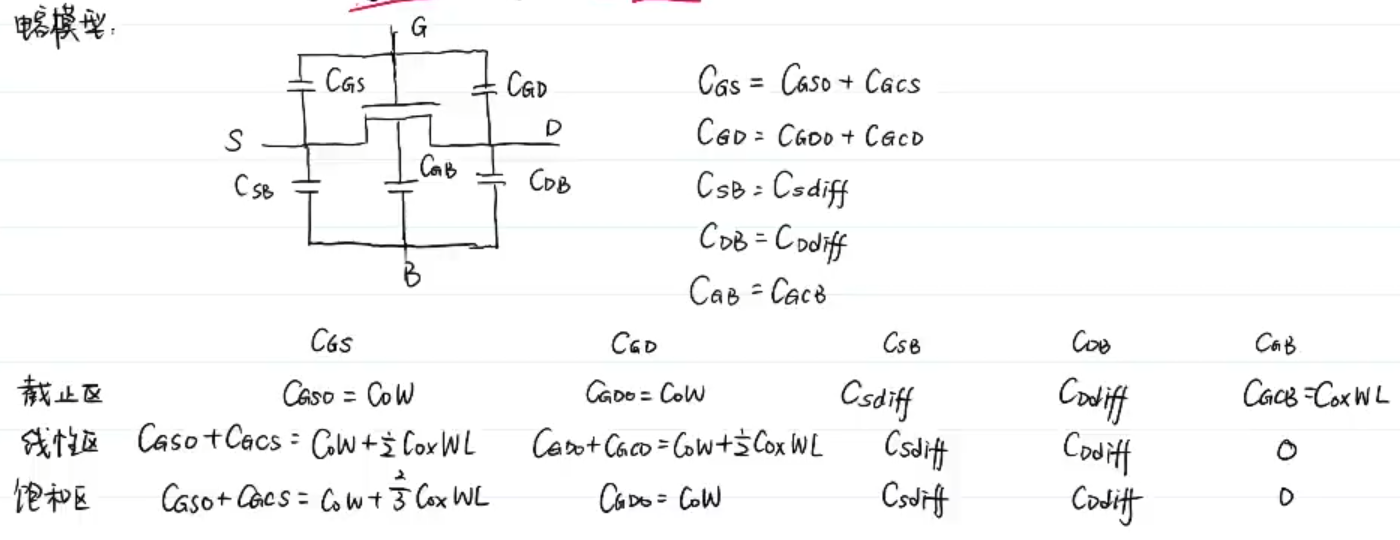 电容模型:
G
CGS
CGD
S
D
CSB
CGB
CDB
B
CGS = CGSO + CGCS
CGD = CGDO + CGCD
CSB = CSdiff
CDB = CDdiff
CGB = CGCB
CGS CGD CSB CDB CGB
截止区 CGSO = CoW CGDO = CoW CSdiff CDdiff CGCB = CoxWL
线性区 CGSO + CGCS = CoW + 1/2 CoxWL CGDO + CGCD = CoW + 1/2 CoxWL CSdiff CDdiff 0
饱和区 CGSO + CGCS = CoW + 2/3 CoxWL CGDO = CoW CSdiff CDdiff 0